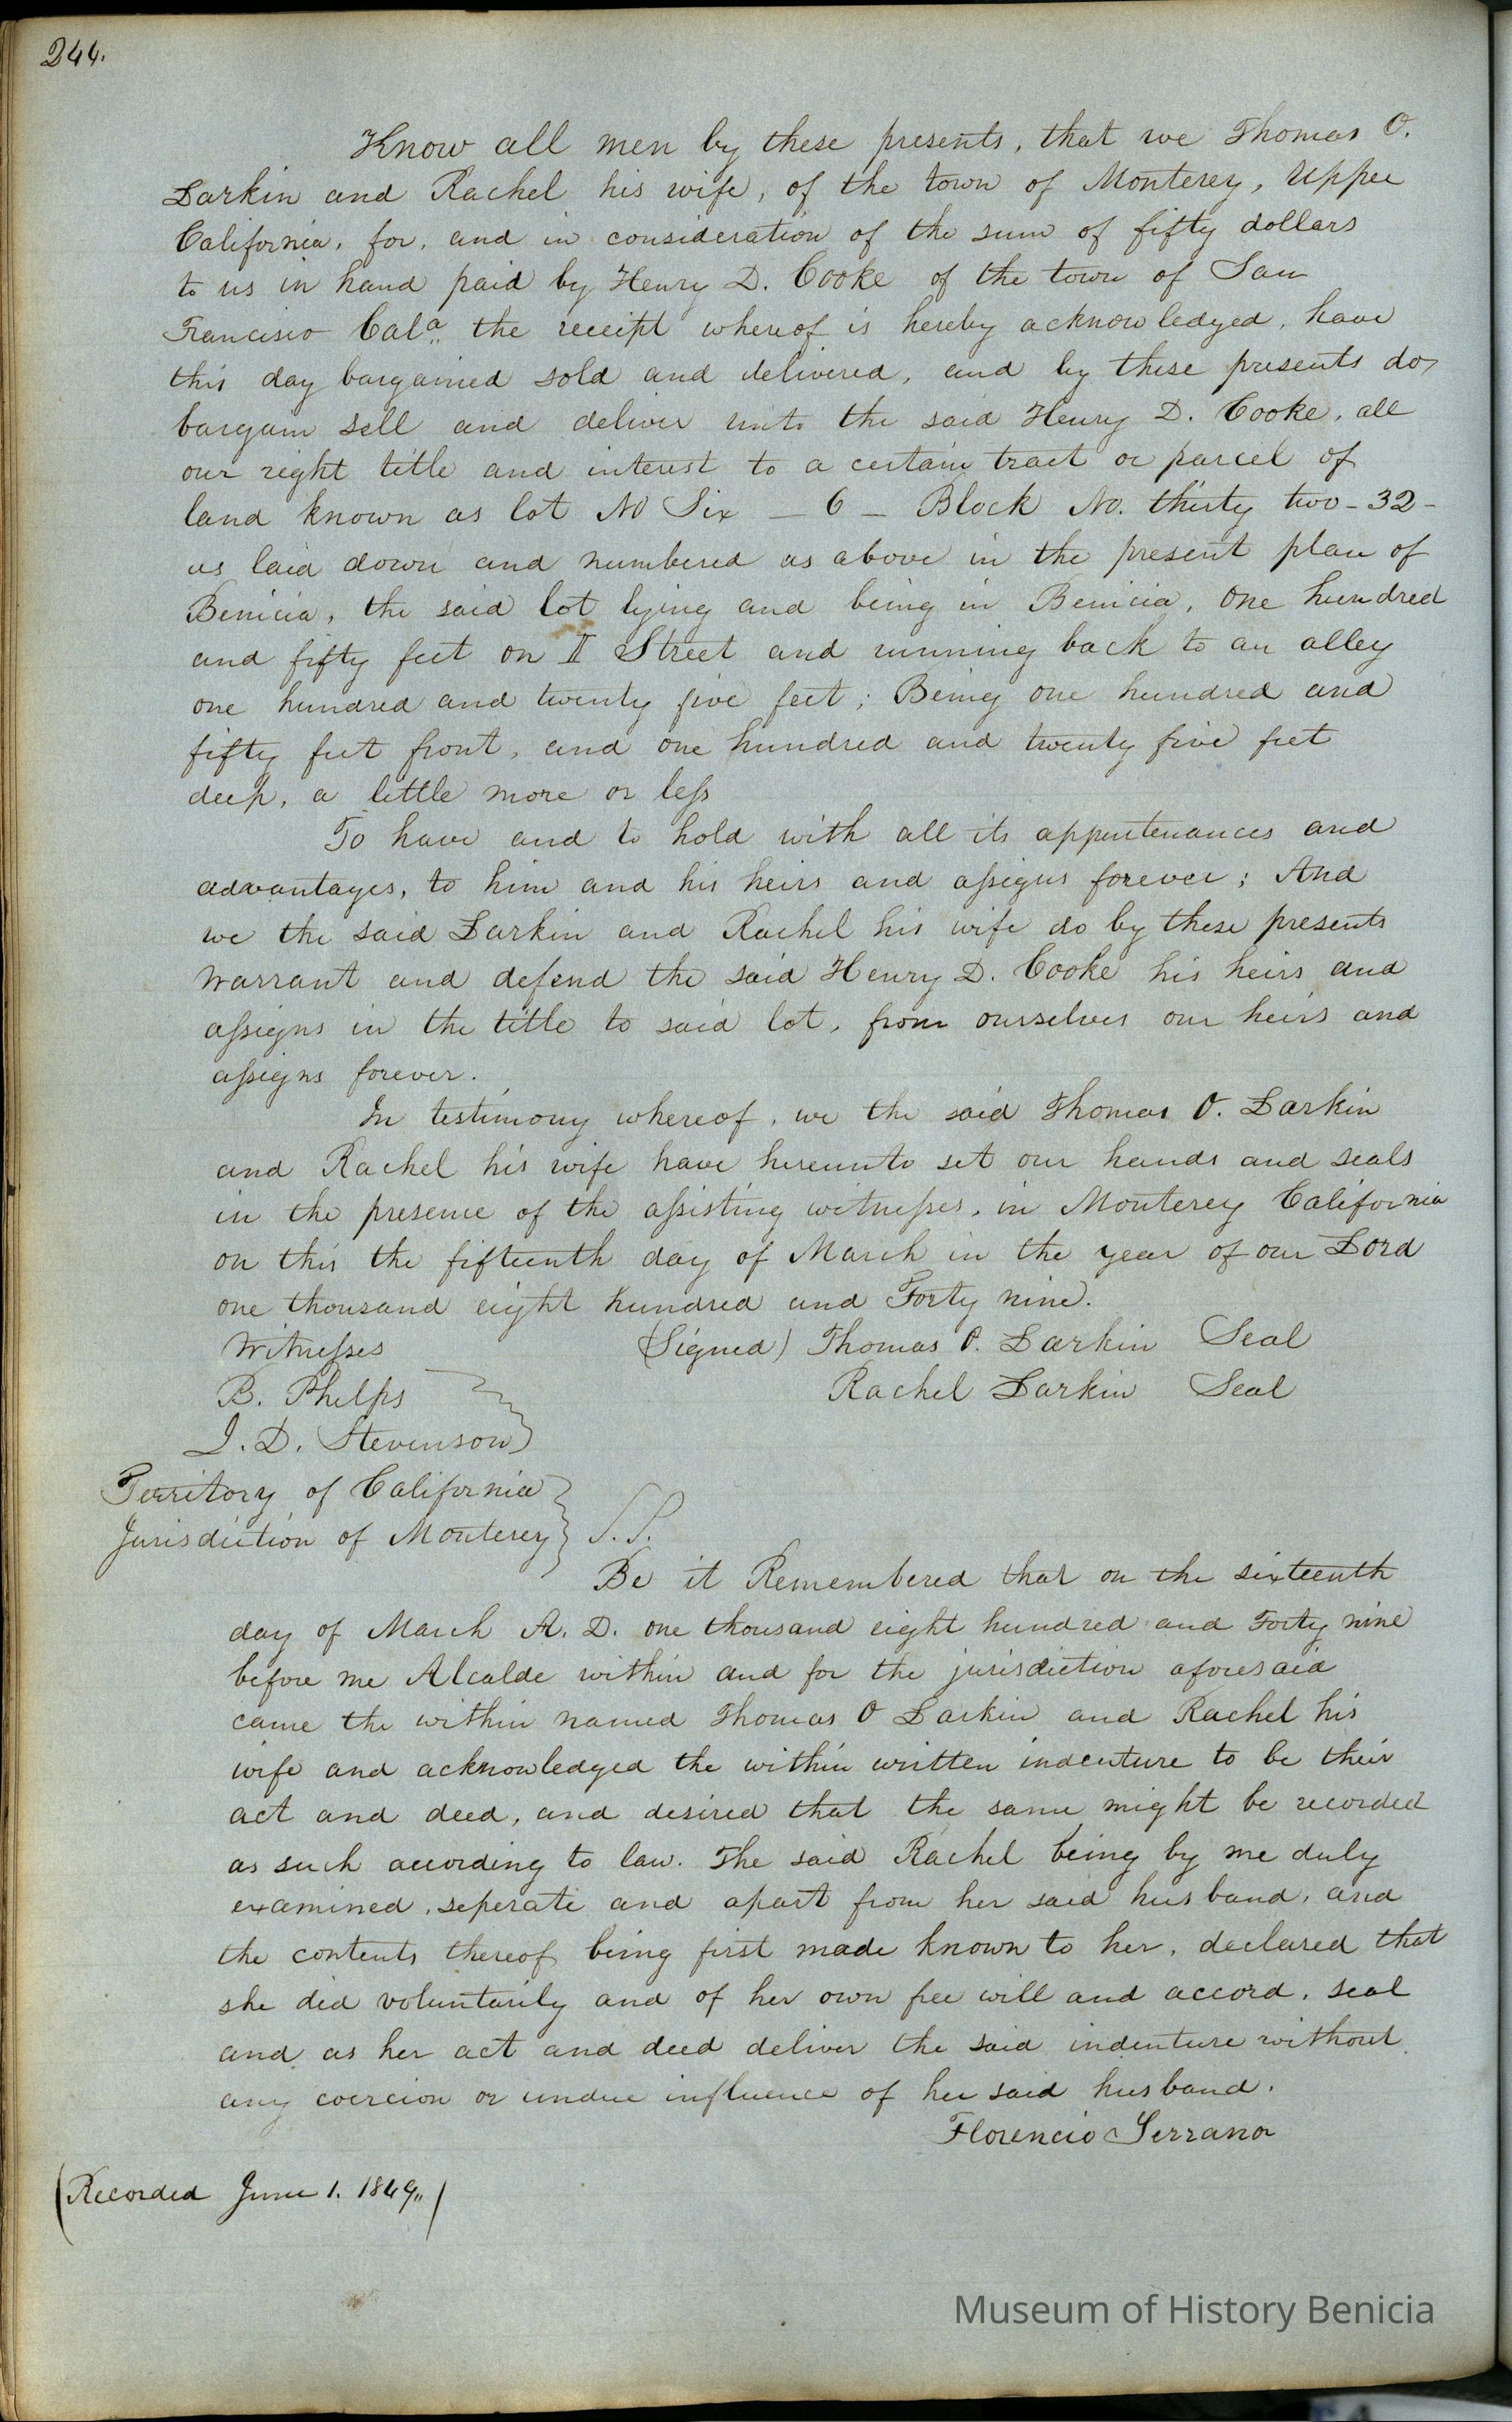 244.
Know all men by these presents, that we Thomas O.
Larkin and Rachel his wife, of the town of Monterey, Upper
California, for, and in consideration of the sum of fifty dollars
to us in hand paid by Henry D. Cooke of the town of San
Francisco Cala. the receipt whereof is hereby acknowledged, have
this day bargained sold and delivered, and by these presents do
bargain sell and deliver unto the said Henry D. Cooke, all
our right title and interest to a certain tract or parcel of
land known as lot No Six — 6 — Block No. thirty two - 32 -
as laid down and numbered as above in the present plan of
Benicia, the said lot lying and being in Benicia, One hundred
and fifty feet on I Street and running back to an alley
one hundred and twenty five feet; Being one hundred and
fifty feet front, and one hundred and twenty five feet
deep, a little more or less
To have and to hold with all its appurtenances and
advantages, to him and his heirs and assigns forever; And
we the said Larkin and Rachel his wife do by these presents
Warrant and defend the said Henry D. Cooke his heirs and
assigns in the title to said lot, from ourselves our heirs and
assigns forever.
In testimony whereof, we the said Thomas O. Larkin
and Rachel his wife have hereunto set our hands and seals
in the presence of the assisting witnesses, in Monterey California
on this the fifteenth day of March in the year of our Lord
one thousand eight hundred and Forty nine.
Witnesses (Signed) Thomas O. Larkin Seal
B. Phelps Rachel Larkin Seal
J. D. Stevenson
Territory of California
Jurisdiction of Monterey S.S.
Be it Remembered that on the sixteenth
day of March A. D. one thousand eight hundred and Forty nine
before me Alcalde within and for the jurisdiction aforesaid
came the within named Thomas O Larkin and Rachel his
wife and acknowledged the within written indenture to be their
act and deed, and desired that the same might be recorded
as such according to law. The said Rachel being by me duly
examined, seperate and apart from her said husband, and
the contents thereof being first made known to her, declared that
she did voluntarily and of her own free will and accord, seal
and as her act and deed deliver the said indenture without
any coercion or undue influence of her said husband.
Florencio Serrano
(Recorded June 1. 1849,,)
Museum of History Benicia